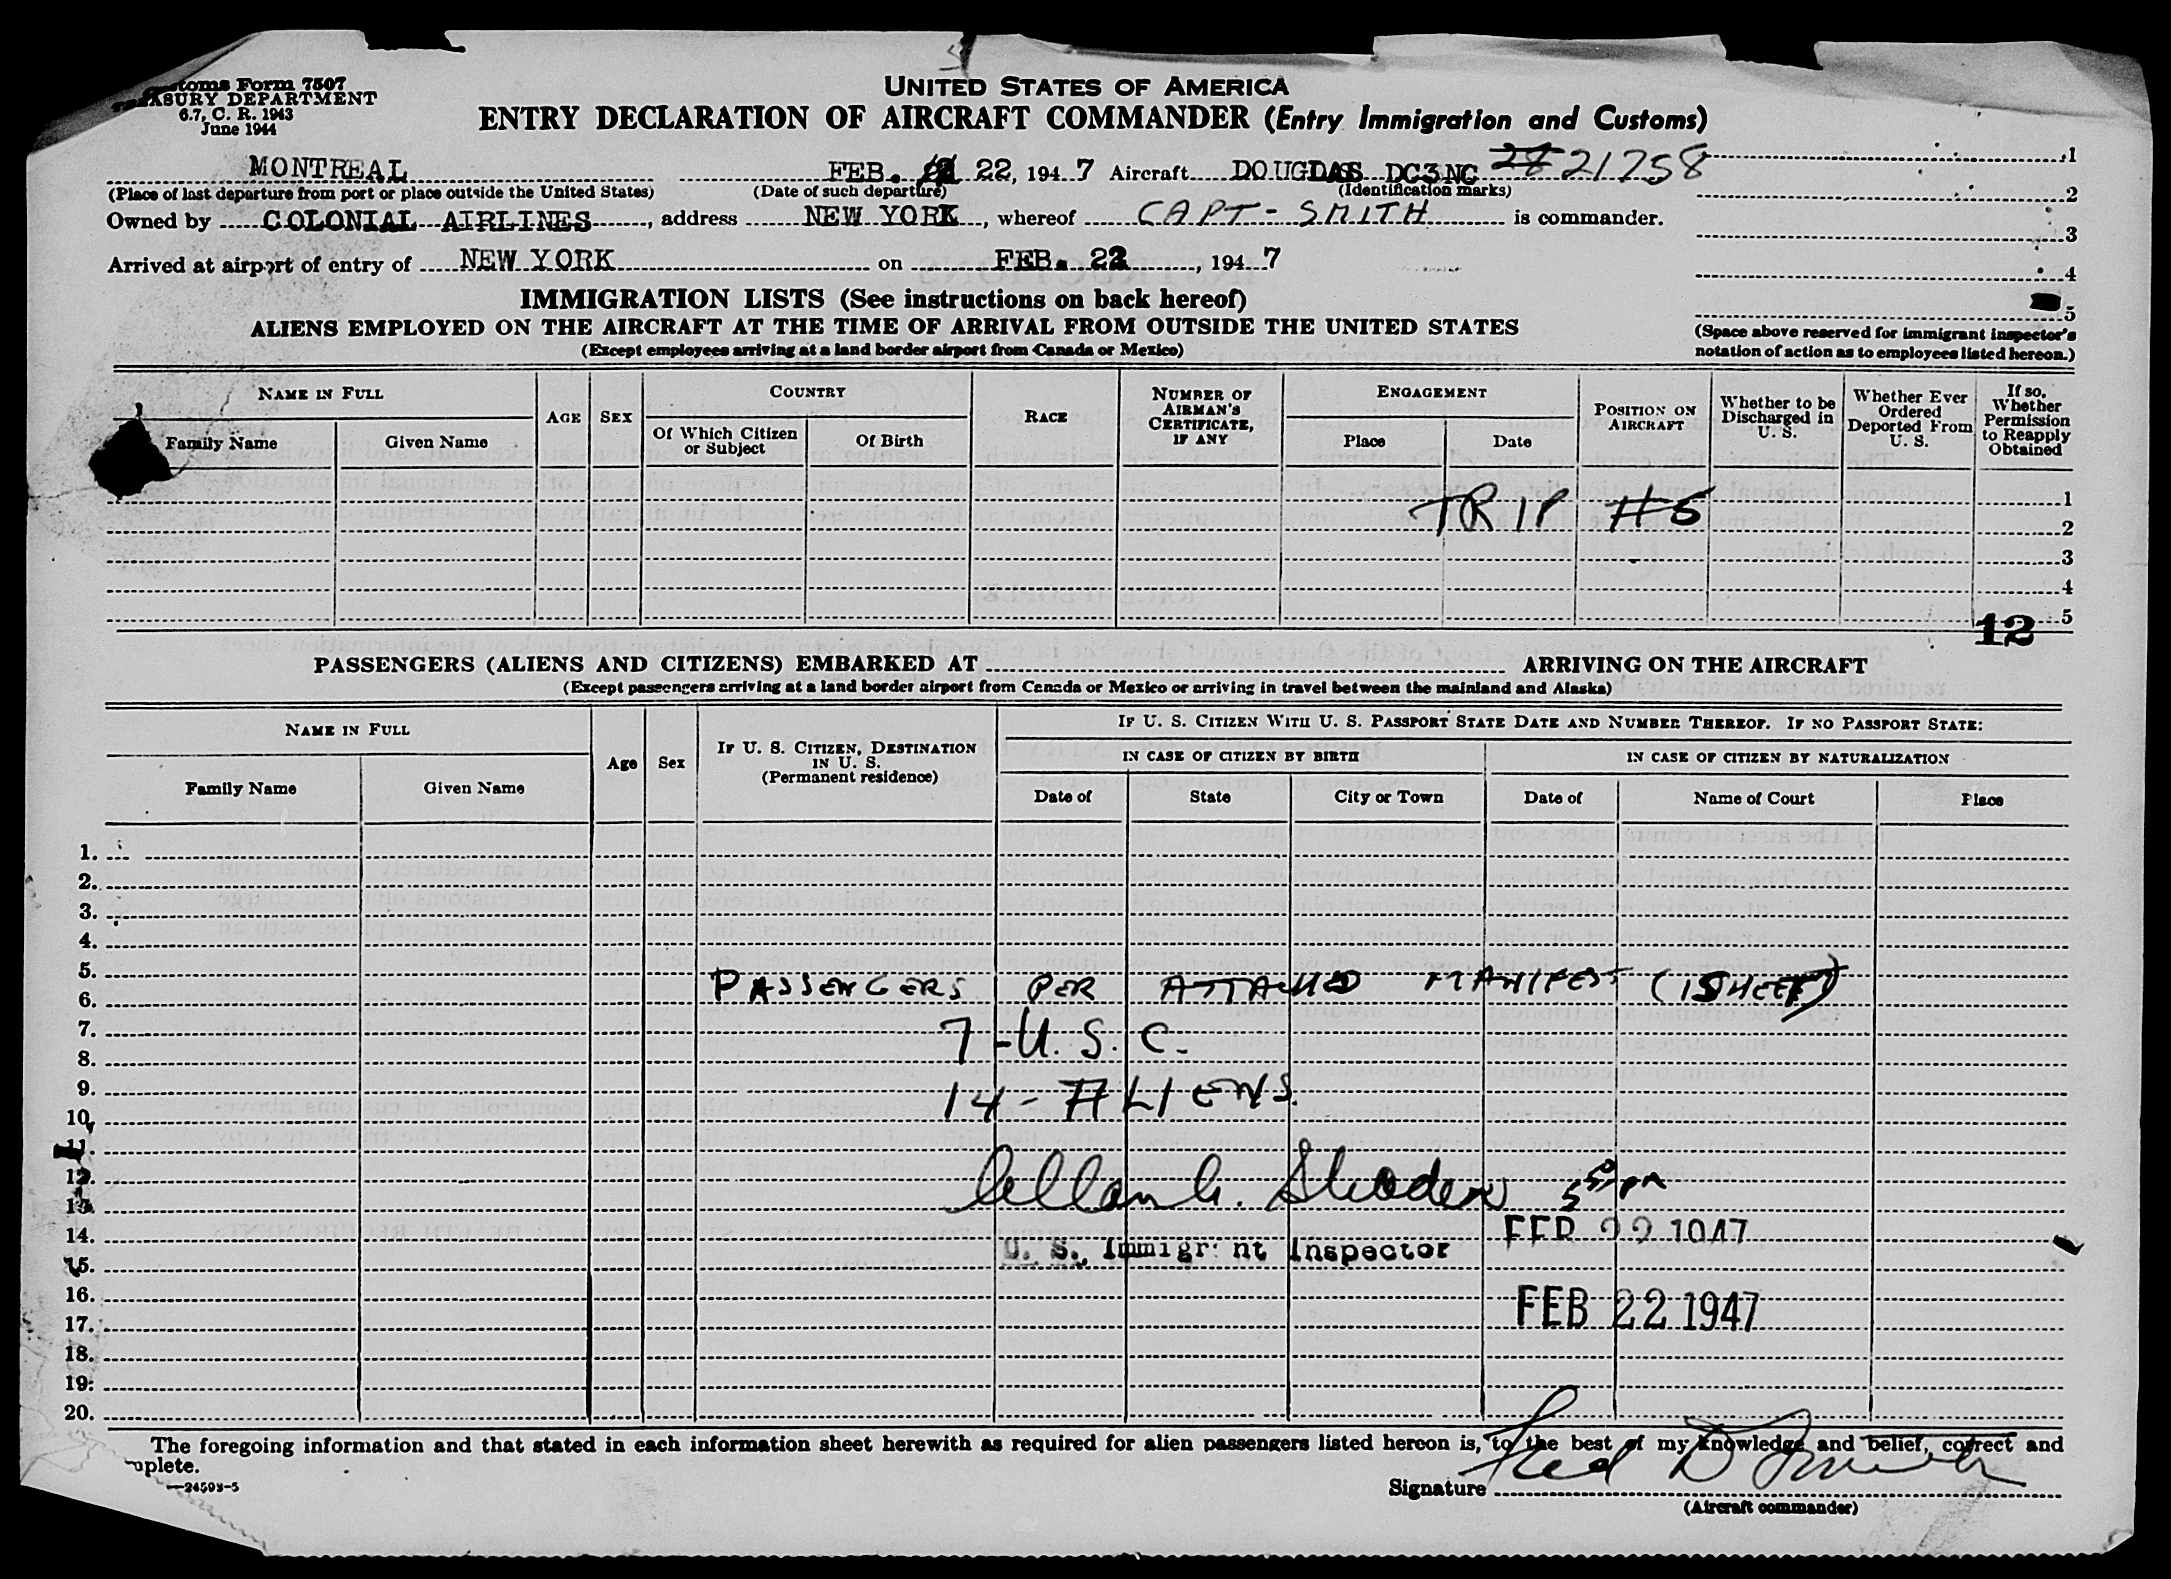 Customs Form 7507
TREASURY DEPARTMENT
6.7, C. R. 1943
June 1944
UNITED STATES OF AMERICA
ENTRY DECLARATION OF AIRCRAFT COMMANDER (Entry Immigration and Customs)
MONTREAL FEB. 22, 1947 Aircraft DOUGLAS DC3 NC 21758 1
(Place of last departure from port or place outside the United States) (Date of such departure) (Identification marks)
2
Owned by COLONIAL AIRLINES, address NEW YORK, whereof CAPT- SMITH is commander.
3
Arrived at airport of entry of NEW YORK on FEB. 22, 1947
4
IMMIGRATION LISTS (See instructions on back hereof)
5
ALIENS EMPLOYED ON THE AIRCRAFT AT THE TIME OF ARRIVAL FROM OUTSIDE THE UNITED STATES
(Except employees arriving at a land border airport from Canada or Mexico)
(Space above reserved for immigrant inspector's
notation of action as to employees listed hereon.)
NAME IN FULL
Family Name Given Name
AGE SEX
COUNTRY
Of Which Citizen or Subject Of Birth
RACE
NUMBER OF AIRMAN'S CERTIFICATE, IF ANY
ENGAGEMENT
Place Date
POSITION ON AIRCRAFT
Whether to be Discharged in U. S.
Whether Ever Ordered Deported From U. S.
If so, Whether Permission to Reapply Obtained
1
TRIP #5
2
3
4
5
12
PASSENGERS (ALIENS AND CITIZENS) EMBARKED AT ARRIVING ON THE AIRCRAFT
(Except passengers arriving at a land border airport from Canada or Mexico or arriving in travel between the mainland and Alaska)
NAME IN FULL
Family Name Given Name
Age Sex
IF U. S. CITIZEN, DESTINATION IN U. S. (Permanent residence)
IF U. S. CITIZEN WITH U. S. PASSPORT STATE DATE AND NUMBER THEREOF. IF NO PASSPORT STATE:
IN CASE OF CITIZEN BY BIRTH IN CASE OF CITIZEN BY NATURALIZATION
Date of State City or Town Date of Name of Court Place
1.
2.
3.
4.
5.
PASSENGERS PER ATTACHED MANIFEST (1 SHEET)
6.
7.
7 - U. S. C.
8.
9.
14 - ALIENS.
10.
11.
12.
13.
14. FEB 22 1947
U. S. Immigrant Inspector
15.
16.
FEB 22 1947
17.
18.
19.
20.
The foregoing information and that stated in each information sheet herewith as required for alien passengers listed hereon is, to the best of my knowledge and belief, correct and
complete.
—24593-5
Signature Fred D Smith
(Aircraft commander)